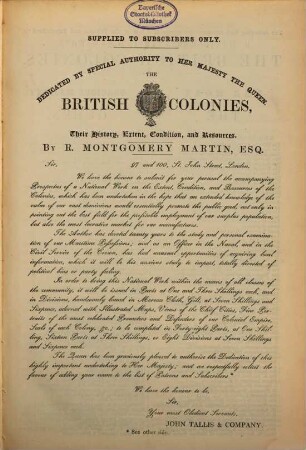 Bayerische
Staatsbibliothek
München
SUPPLIED TO SUBSCRIBERS ONLY.
DEDICATED BY SPECIAL AUTHORITY TO HER MAJESTY THE QUEEN.
THE
BRITISH COLONIES,
Their History, Extent, Condition, and Resources.
BY R. MONTGOMERY MARTIN, ESQ.
97 and 100, St. John Street, London.
Sir,
We have the honour to submit for your perusal the accompanying
Prospectus of a National Work on the Extent, Condition, and Resources of the
Colonies, which has been undertaken in the hope that an extended knowledge of the
value of our vast dominions would essentially promote the public good, not only in
pointing out the best field for the profitable employment of our surplus population,
but also the most lucrative market for our manufactures.
The Author has devoted twenty years to the study and personal examination
of our Maritime Possessions; and as an Officer in the Naval, and in the
Civil Service of the Crown, has had unusual opportunities of acquiring local
information, which it will be his anxious study to impart, totally divested of
political bias or party feeling.
In order to bring this National Work within the means of all classes of
the community, it will be issued in Parts at One and Three Shillings each, and
in Divisions, handsomely bound in Morocco Cloth, Gilt, at Seven Shillings and
Sixpence, adorned with Illustrated Maps, Views of the Chief Cities, Fine Portraits
of the most celebrated Promoters and Defenders of our Colonial Empire,
Seals of each Colony, &c.; to be completed in Forty-eight Parts, at One Shilling,
Sixteen Parts at Three Shillings, or Eight Divisions at Seven Shillings and
Sixpence each.
The Queen has been graciously pleased to authorise the Dedication of this
highly important undertaking to Her Majesty; and we respectfully solicit the
favour of adding your name to the list of Patrons and Subscribers.*
We have the honour to be,
Sir,
Your most Obedient Servants,
JOHN TALLIS & COMPANY.
* See other side.